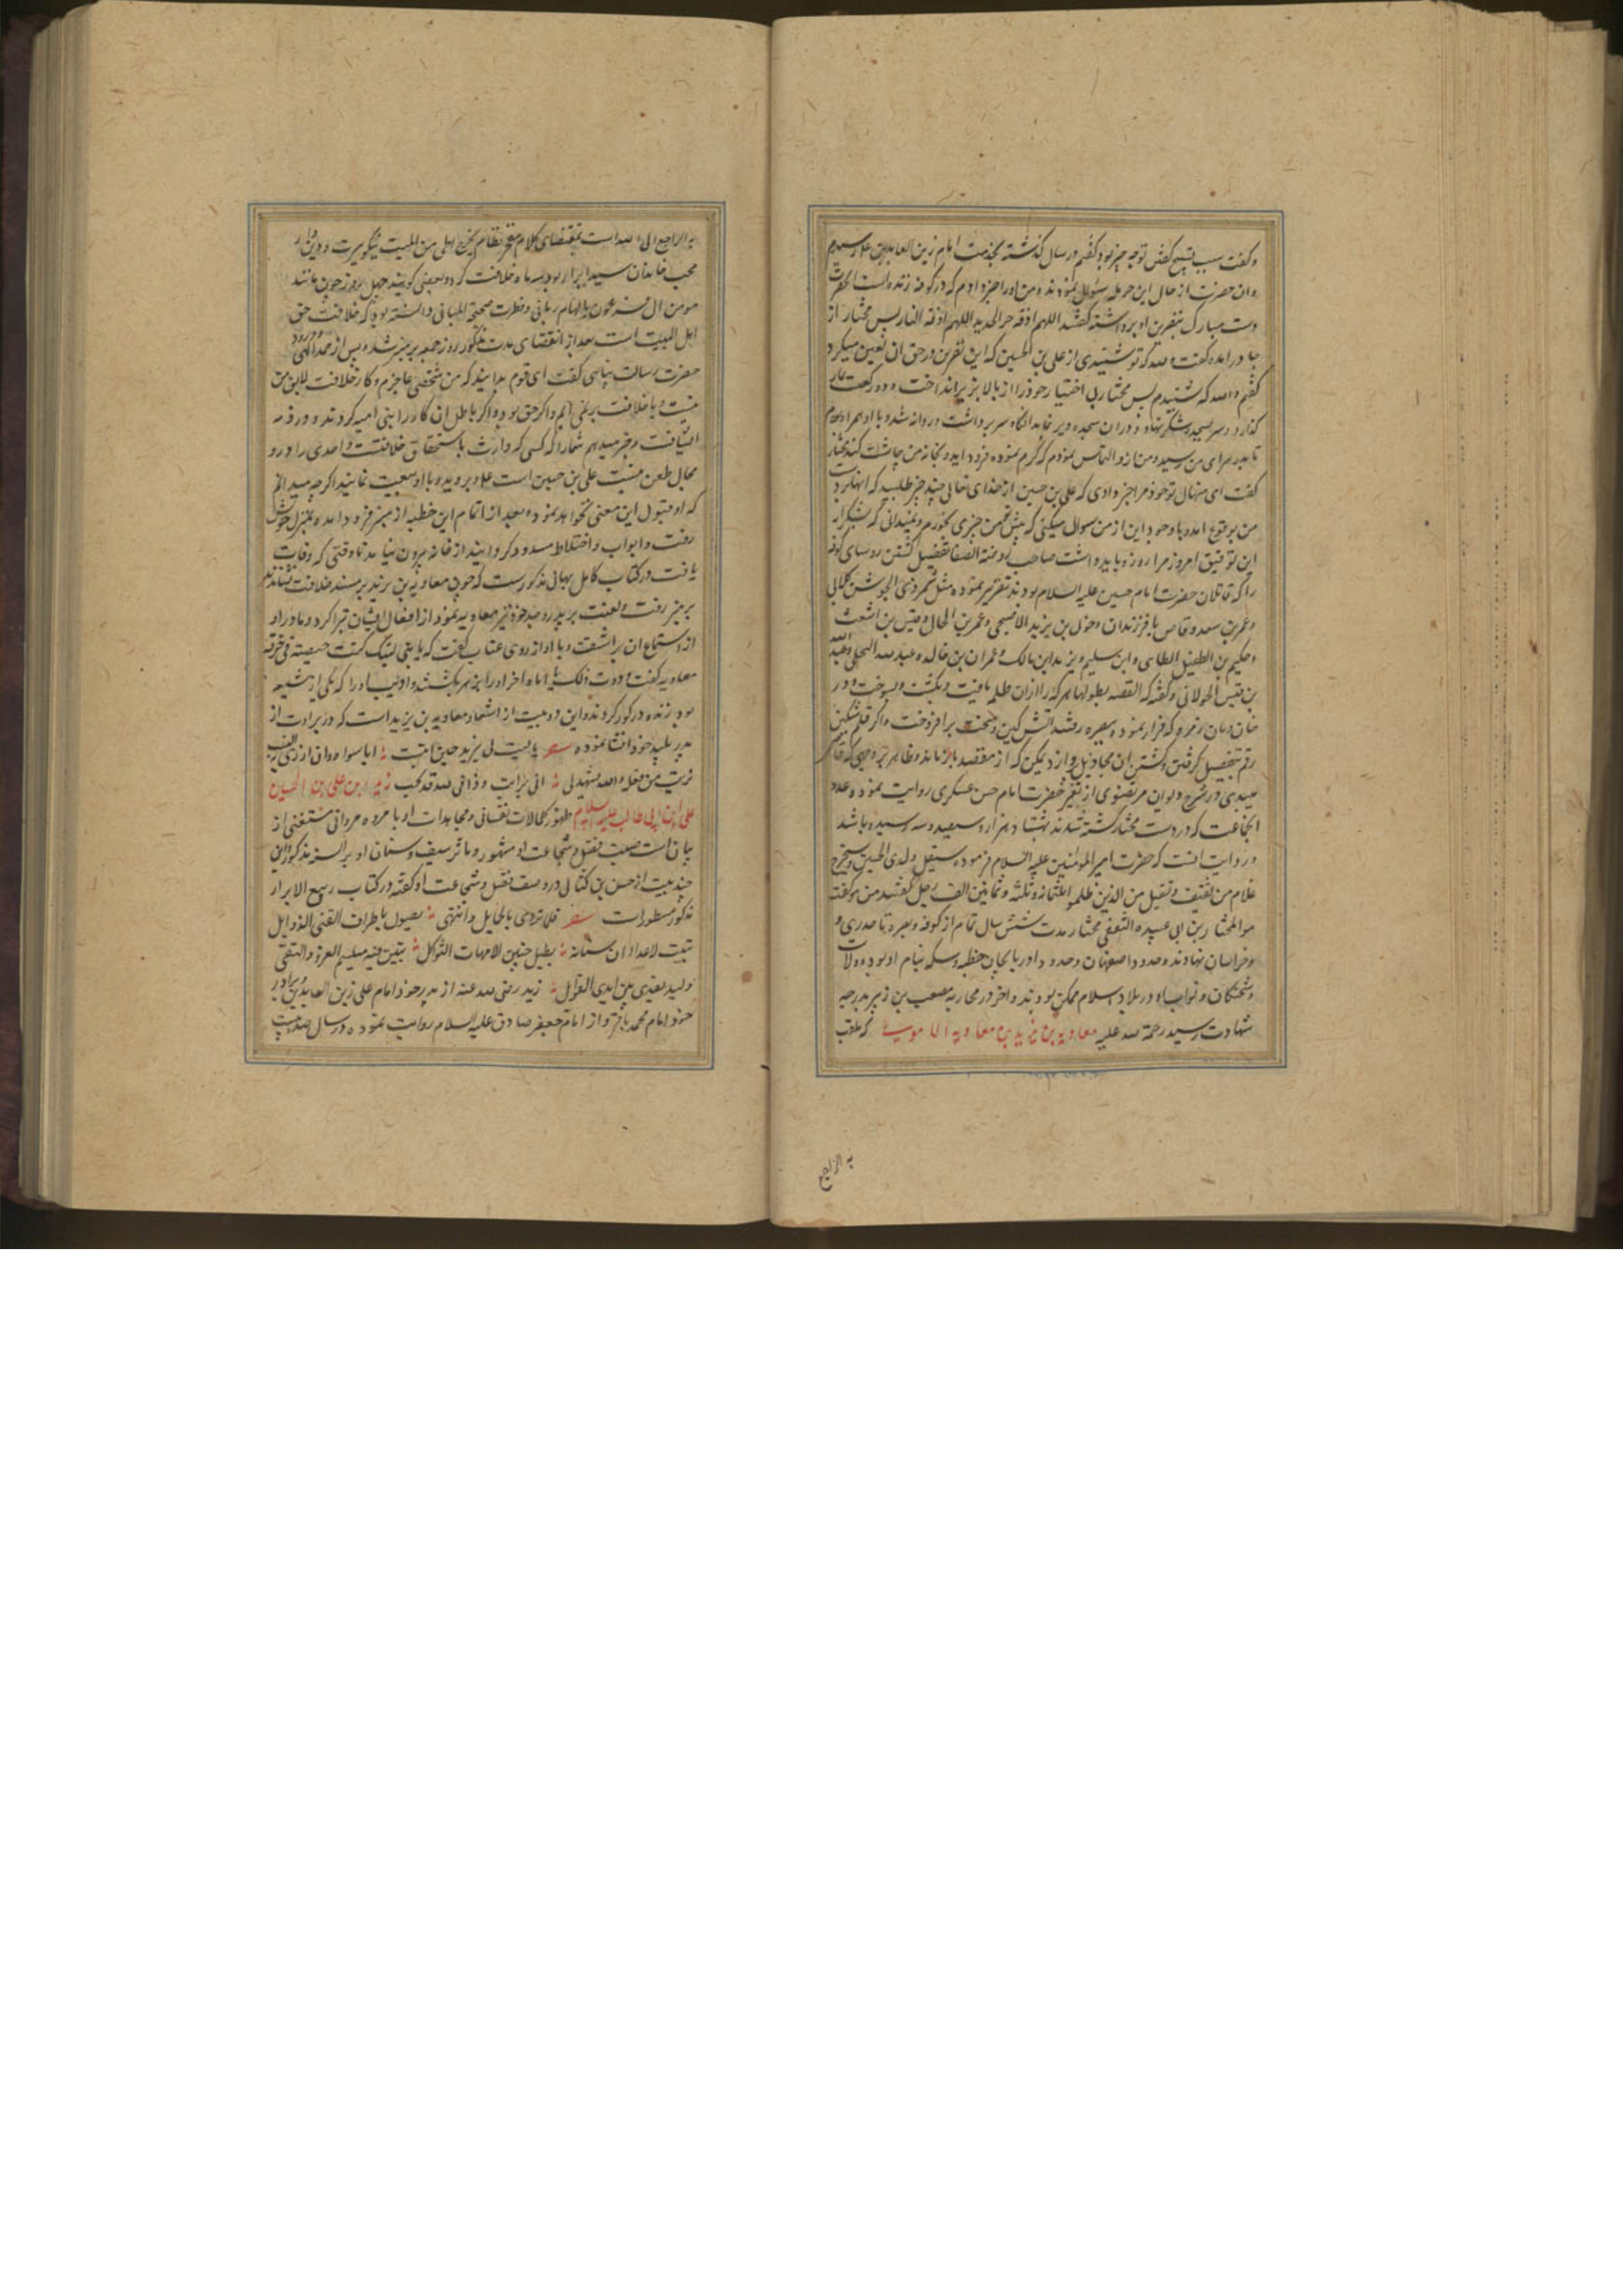 و گفت سبب تسبیح گفتن تو چه چیز بود گفتم در سال گذشته بخدمت امام زین العابدین علی رسیدم
و ان حضرت از حال این حرمله سئوال نمودند و من او را خبر دادم که در کوفه زنده است انحضرت
دست مبارک بنفرین او برداشته گفتند اللهم اذقه حر الحدید اللهم اذقه النار پس مختار از
جا درامده گفت والله که تو شنیدی از علی بن الحسین که این نفرین در حق ان لعین میکرد
گفتم والله که شنیدم پس مختار بی اختیار خود را از بالا بزیر انداخت و دو رکعت نماز
گذارد و سر بسجده شکر نهاد و در ان سجده دیر ماند انگاه سر برداشت و روانه شد و با او همراه بودم
تا بدر سرای من رسید و من از و التماس نمودم که کرم نموده فرود اید و بخانه من چاشت کند مختار
گفت ای منهال تو خود مرا خبر دادی که علی بن حسین از خدای تعالی چند چیز طلبید که انها بر دست
من بوقوع امد و با وجود این از من سوال میکنی که پیش تو من چیزی بخورم و نمیدانی که بشکرانه
این توفیق امروز مرا روزه باید داشت صاحب روضة الصفا تفصیل کشتن روسای کوفه
را که قاتلان حضرت امام حسین علیه السلام بودند تقریر نموده مثل شمر ذی الجوشن کلابی
و عمر بن سعد وقاص با فرزندان و خولی بن یزید الاصبحی و عمر بن الحجاج و قیس بن اشعث
و حکیم بن الطفیل الطائی و ابن سلیم و یزید ابن مالک و عمران بن خالد و عبد الله البجلی و عبد الله
بن قیس الخولانی و گفته که القصه بطولها هر که را ازان ظلمه یافت و بکشت و بسوخت و در
خان و مان زمره که فرار نموده ببصره رفتند اتش کین و محنت برافروخت و اگر قلم مشکین
رقم بتفصیل گرفتن و کشتن ان مجاذیل پردازد یمکن که از مقصد باز ماند و ظاهر بر وجهی که قاضی
میبدی در شرح دیوان مرتضوی از تفسیر حضرت امام حسن عسکری روایت نموده عدد
انجماعت که در دست مختار کشته شدند هشتاد هزار و سیصد و سه رسیده باشد
و روایت انست که حضرت امیر المومنین علیه السلام فرموده سیقتل ولدی الحسین و سیخرج
غلام من ثقیف و یقتل من الذین ظلموا ثلثمائه و ثلثه و ثمانین الف رجل گفتند من هو گفت
هو المختار بن ابی عبیده الثقفی مختار مدت شش سال تمام از کوفه و بصره تا حد ری و
و خراسان نهاوند و حدود اصفهان و حدود اذربایجان خطبه و سکه بنام او بود و ولات
و شحنگان و نواب او در بلاد اسلام ممکن بودند و اخر در محاربه مصعب بن زبیر بدرجه
شهادت رسید رحمة الله علیه معاویه بن یزید بن معاویه الاموی که ملقب
به الراجع
به الراجع الی الله است بمقتضای کلام معجز نظام یخرج الحی من المیت نیکو سیرت و دیندار
محب خاندان سید ابرار بود سه ماه خلافت کرد و بعضی گویند چهل روز چون مانند
مومن ال فرعون بالهام ربانی و فطرت دانسته بود که خلافت حق
اهل البیت است بعد از انقضای مدت مذکور روز جمعه بر منبر شد و پس از حمد الهی و درود
حضرت رسالت پناهی گفت ای قوم بدانید که من شخصی عاجزم و کار خلافت لایق من
نیست و با خلافت بر نمی ایم و اگر حق بود و اگر باطل ال
انیافت و خبر میدهم شما را که کسی که وارث باستحقاق خلافتست و احدی را در و
مجال طعن نیست علی بن حسین است علیه بروید و با او بیعت نمایید اگر چه میدانم
که او قبول این معنی نخواهد نمود و بعد از اتمام این خطبه از منبر فرود امده بمنزل خویش
رفت و ابواب و اختلاط مسدود گردانید از خانه بیرون نیامد تا وقتی که وفات
یافت در کتاب کامل بهائی مذکورست که چون معاویه بن یزید بر مسند خلافت نشاندند
بر منبر رفت و لعنت بر پدر و جد خود نیز معاویه نمود از افعال ایشان تبرا کرد و مادر او
از استماع ان براشفت و با او از روی عتاب گفت که یا بنی لیتک کنت حیضة فی خرقة
معاویه گفت وددت ذلک یا اماه اخر او را زهر بکشتند و ادیب او را که یکی از شیعه
بود زنده در گور کردند و این دو بیت از اشعار معاویه بن یزید است که در براءت از
پدر پلید خود انشا نموده شعر یا لیت لی یزید حین انتسب
علی ابن ابی طالب علیه السلام ظهور کمالات نفسانی و مجاهدات او با مروه مروانی مستغنی از
بیان است صیت فضل و شجاعت او مشهور و ماثر سیف و سنان او بر السنه مذکور و این
چند بیت از حسن بن کنانی در وصف فضل و شجاعت او گفته در کتاب ربیع الابرار
مذکور مسطور است شعر فلا تردی بالحمایل وانتهی یصول باطراف القنی الذوابل
تبینت الاعداء ان سنانه یطیل حنین الامهات الثواکل تبین فیه میسم العز والتقی
ولید یفدی بین ایدی القوابل زید رضی الله عنه از پدر خود امام علی زین العابدین و برادر
خود امام محمد باقر و از امام جعفر صادق علیه السلام روایت نموده و در سال صد و بیست